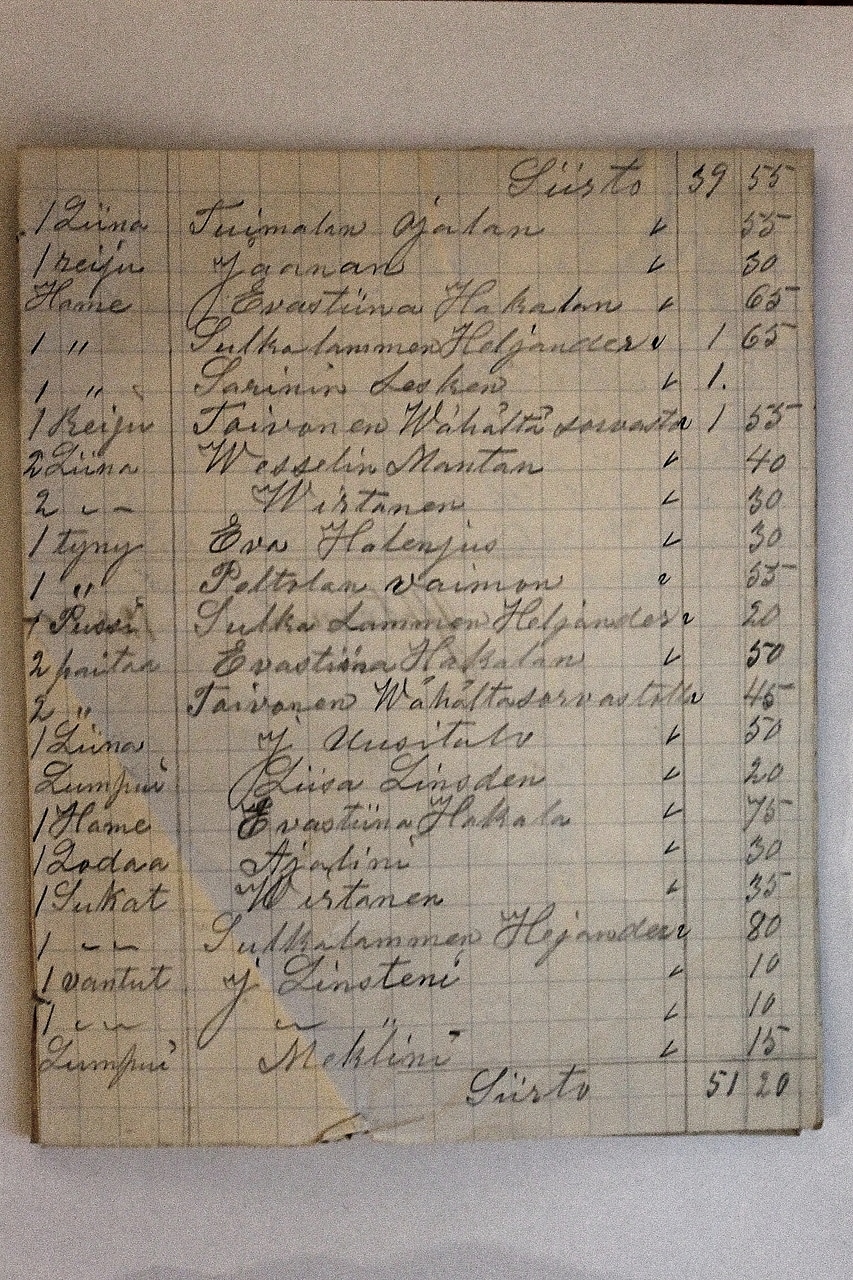 Siirto 39 55
1 Liina Tuimalan Ojalan " 55
1 reiju J Jaanan " 30
Hame Evastiina Hakalan " 65
1 " Sulkalammen Heljander " 1 65
1 " Sarinin Lesken " 1.
1 Reiju Toivonen Wähältä sorvasta 1 55
2 Liina Wesselin Mantan " 40
2 " Wirtanen " 30
1 tyny Eva Halenjus " 30
1 " Peltolan vaimon " 55
1 Pussi Sulka Lammen Heljander " 20
2 paitaa Evastiina Hakalan " 50
2 " Toivonen Wähältasorvastolla 45
1 Liina J Uusitalo " 50
Lumpui Liisa Linsden " 20
1 Hame Evastiina Hakala " 75
1 Lodaa Ajalini " 30
1 Sukat Wirtanen " 35
1 " Sulkalammen Hejander " 80
1 vantut J Linsteni " 10
1 " " " " 10
Lumpui Meklini " 15
Siirto 51 20